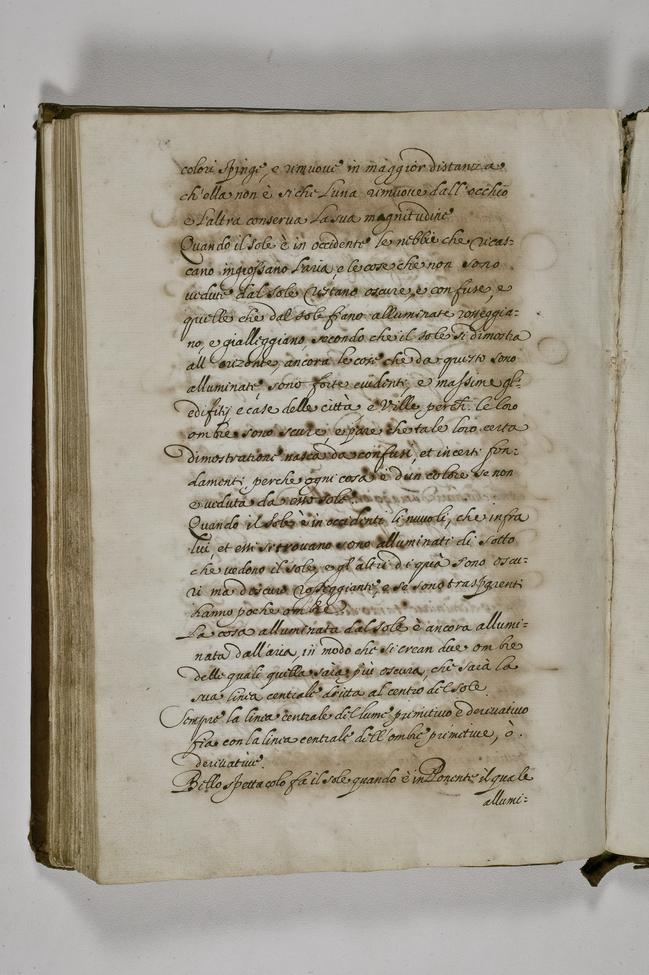 colori spinge, e rimuove in maggior distanza
ch'ella non è si che l'una rimuove dall'occhio
e l'altra conserva la sua magnitudine
Quando il sole è in occidente le nebbie che ricas-
cano ingrossano l'aria, e le cose che non sono
vedute dal sole restano oscure, e confuse, e
quelle che dal sole fiano alluminate rosseggia-
no, e gialleggiano, secondo che il sole si dimostra
all'orizonte, ancora le cose che da questo sono
alluminate sono forte evidenti, e massime gl'
edifitij e case delle città e ville perch. le loro
ombre sono scure, e pare che tale loro certa
dimostratione nasca da confusi, et incerti fon-
damenti, perche ogni cosa è d'un colore se non
e veduta da esso sole.
Quando il sole è in occidenti li nuvoli, che infra
lui, et essi si trovano sono alluminati di sotto
che vedono il sole, e gl'altri di quà sono oscu-
ri ma d'oscuro rosseggiante, e se sono trasparenti
hanno poche ombre.
La cosa alluminata dal sole è ancora allumi-
nata dall'aria, in modo che si crean due ombre
delle quali quella sara più oscura, che sarà la
sua linea centrale dritta al centro del sole.
Sempre la linea centrale del lume primitivo e derivativo
fia con la linea centrale dell'ombre primitive, ò
derivative.
Bello spettacolo fa il sole quando è in Ponente il quale
allumi-